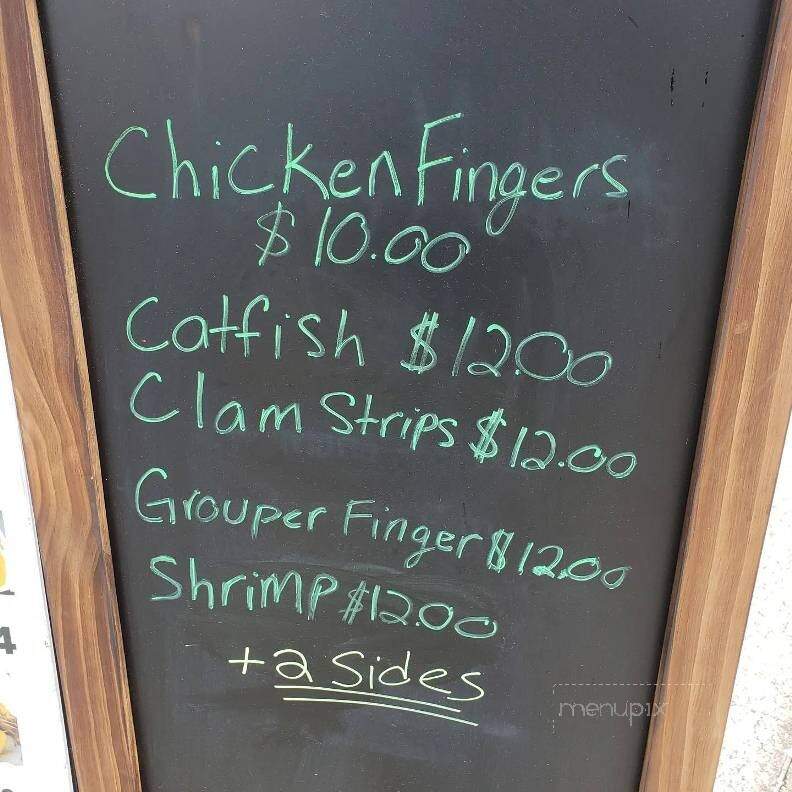 Chicken Fingers
$10.00
Catfish $12.00
Clam Strips $12.00
Grouper Finger $12.00
Shrimp $12.00
+2 Sides
menupix
4